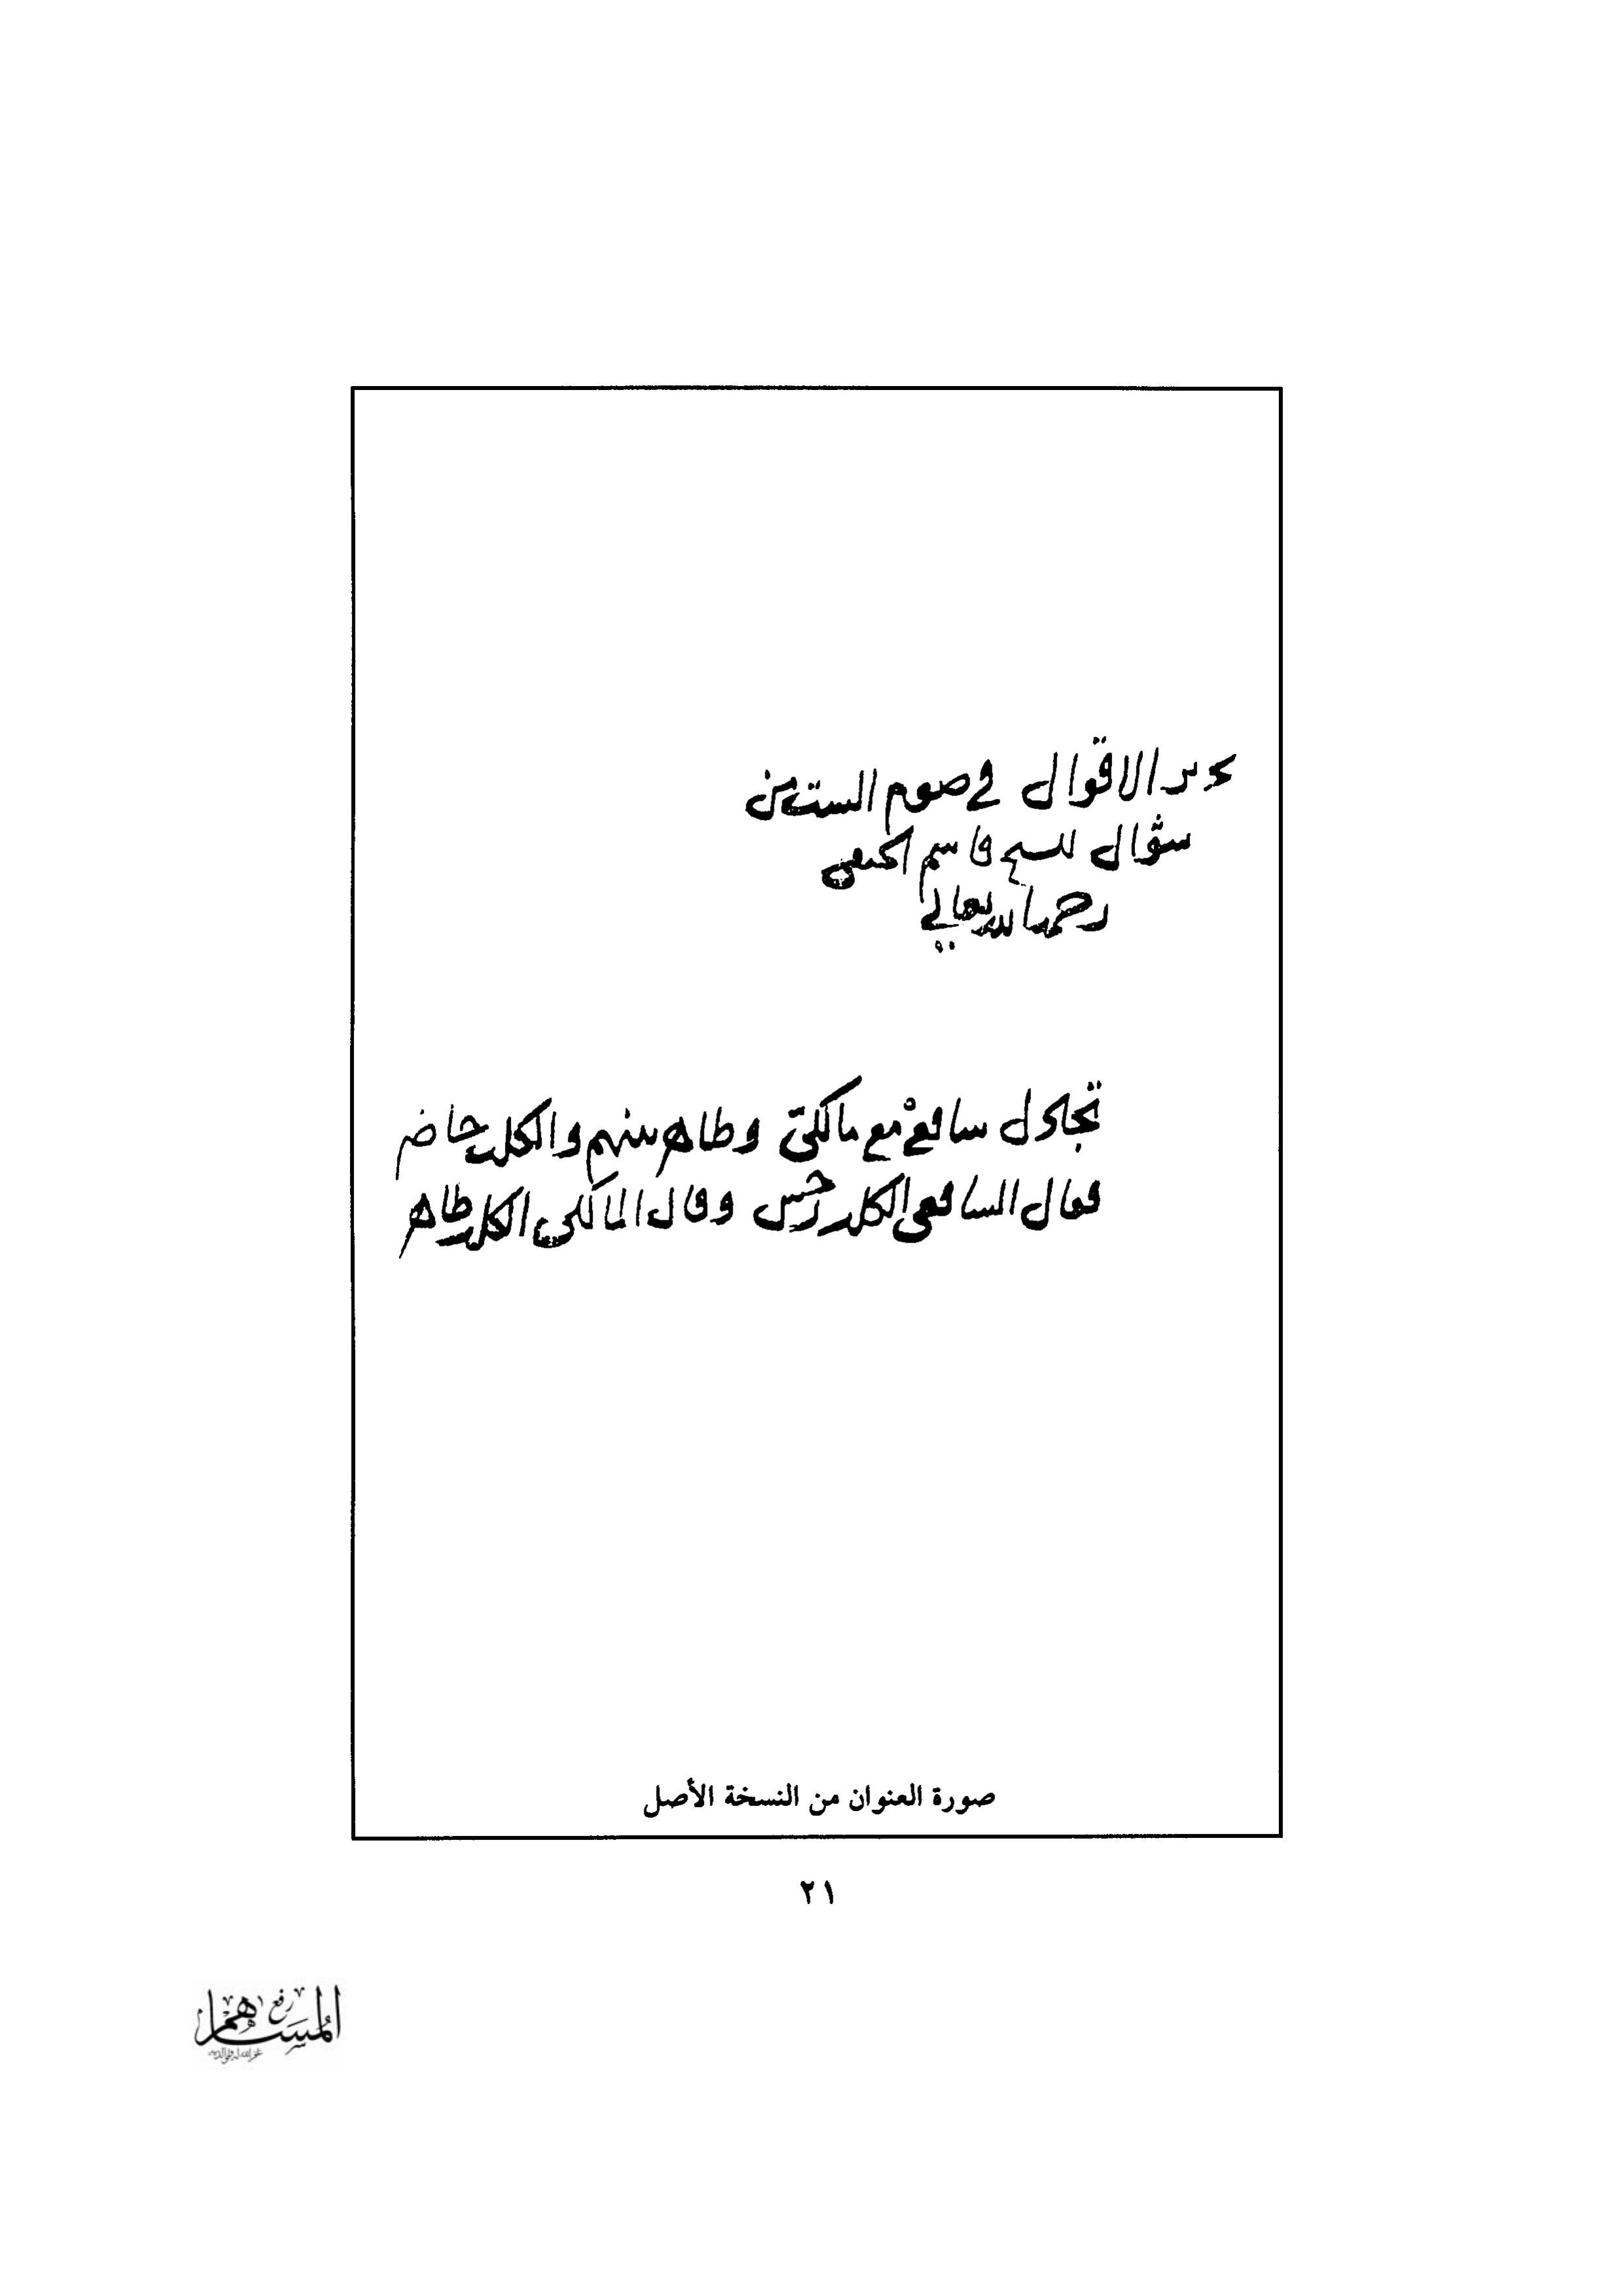 تحرير الاقوال في صوم الست من
شوال للشيخ قاسم الحنفي
رحمه الله تعالى
تجادل شافعي مع مالكي وطاهر بينهم والكلب حاضر
فقال الشافعي الكلب رجس وقال المالكي الكلب طاهر
صورة العنوان من النسخة الأصل
٢١
رفع
المساهم
غفر الله له ولوالديه